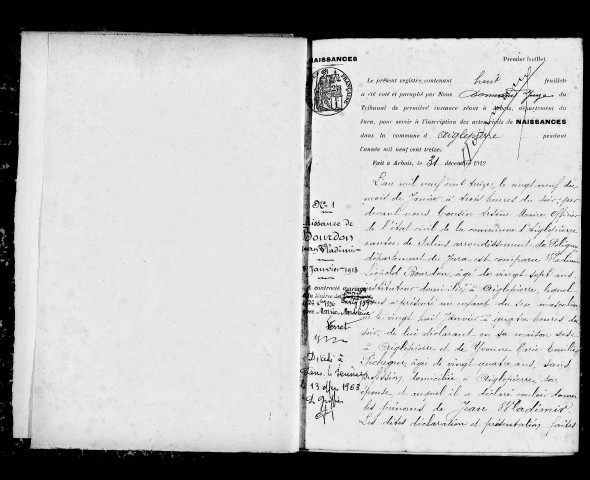 NAISSANCES
Premier feuillet
Le présent registre, contenant huit feuillets
a été coté et paraphé par Nous Juge du
Tribunal de première instance séant à Arbois, département du
Jura, pour servir à l'inscription des actes de NAISSANCES
dans la commune d'Aiglepierre pendant
l'année mil neuf cent treize.
Fait à Arbois, le 31 décembre 1912
L'an mil neuf cent treize, le vingt neuf du
mois de Janvier à trois heures du soir, par
devant nous Cousin Arsène Maire Officier
de l'état civil de la commune d'Aiglepierre
canton de Salins arrondissement de Poligny
département du Jura, est comparu Wladimir
Léopold Bourdon, âgé de vingt sept ans
instituteur domicilié à Aiglepierre, lequel
nous a présenté un enfant du sexe masculin
né le vingt huit Janvier à quatre heures du
soir, de lui déclarant en sa maison sise
à Aiglepierre et de Yvonne Marie Emilie
âgée de vingt quatre ans, sans
profession, domiciliée à Aiglepierre, son
épouse, et auquel il a déclaré vouloir donner
les prénoms de Jean Wladimir.
Les dites déclaration et présentation faites
N° 1
Naissance de
Bourdon
Jean Wladimir
Janvier 1913
a contracté mariage
avec Marie
Décédé à
le 13 1963